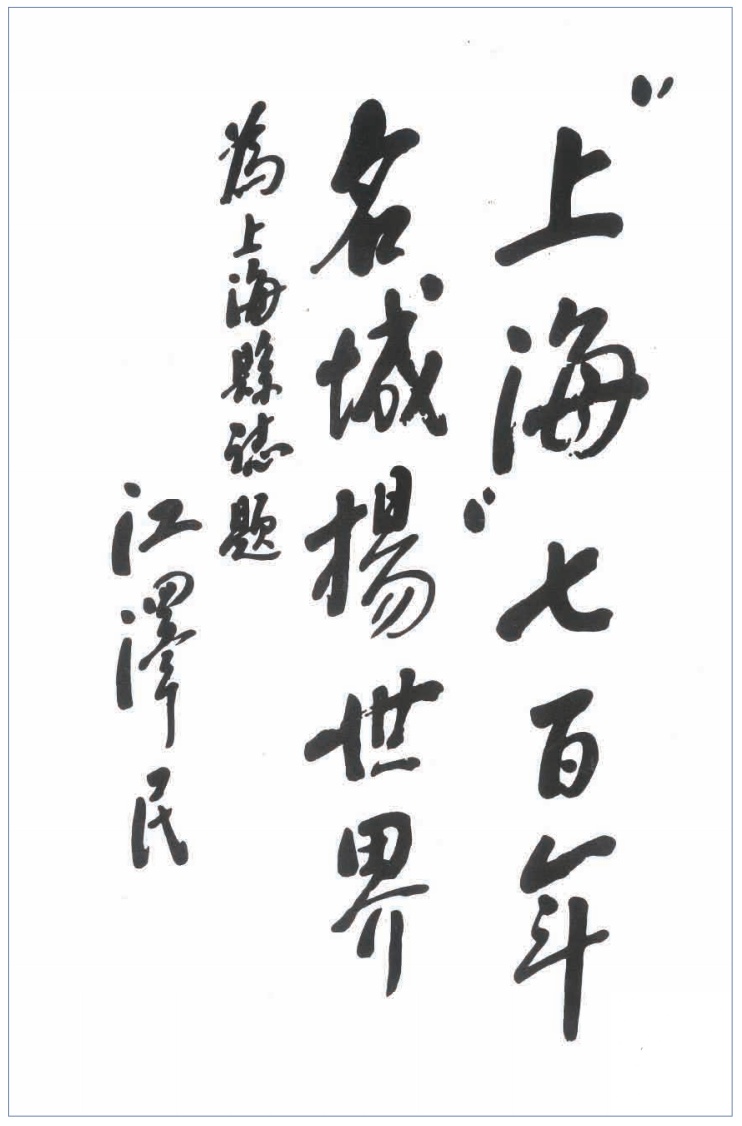 “上海”七百年
名城揚世界
為上海縣誌題
江澤民